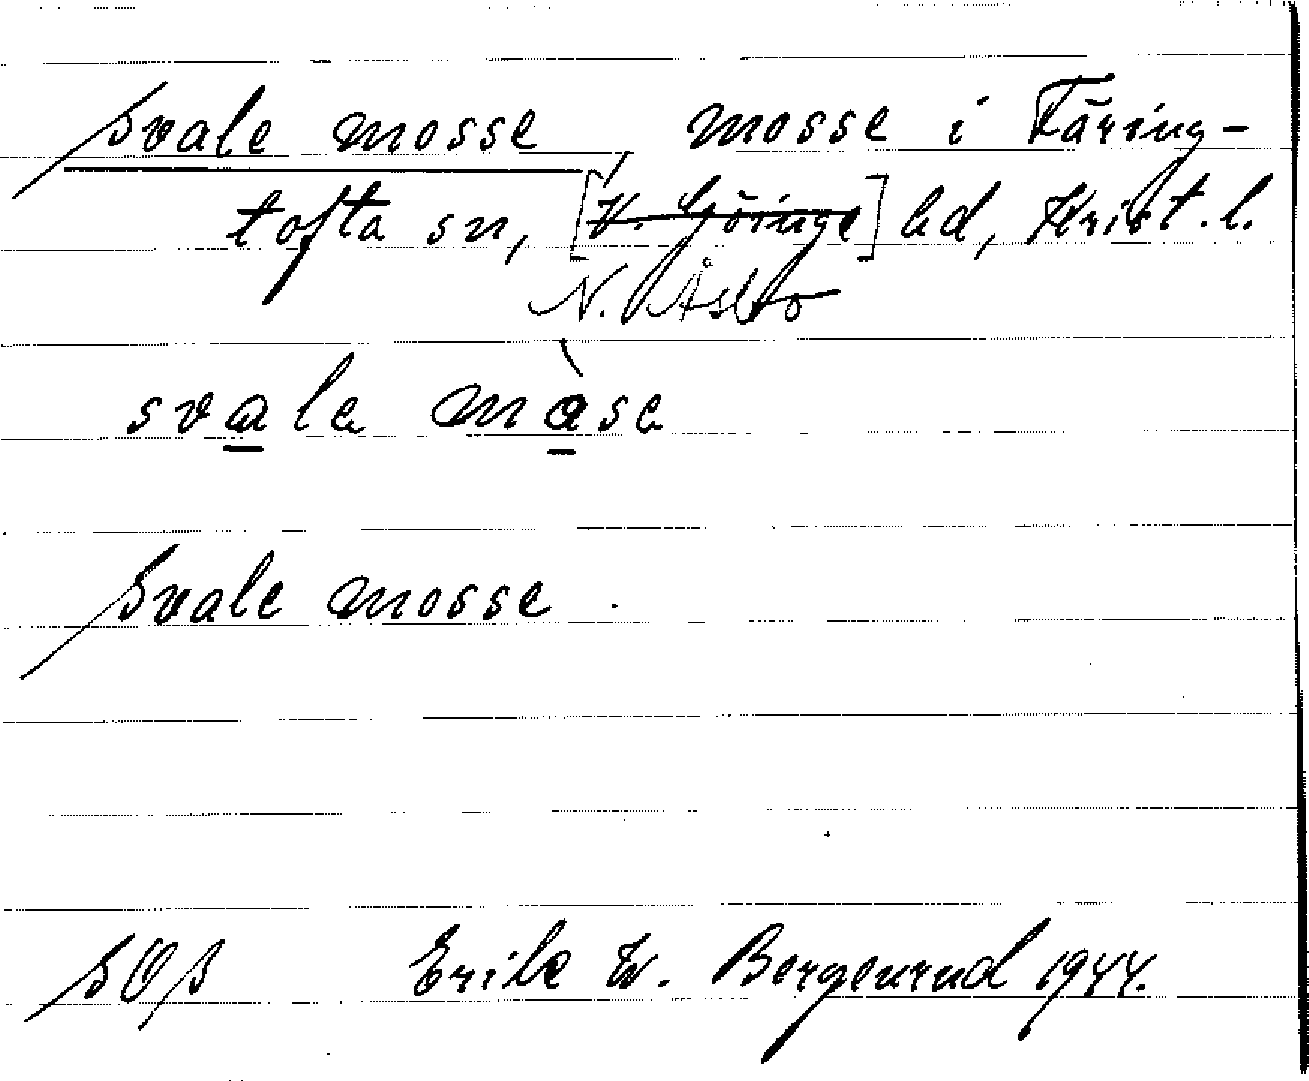 Svale mosse, mosse i Färing-
tofta sn, [V. Göinge] hd, Krist. l.
N. Åsbo
svala mòsa
Svale mosse.
SOS Erik W. Bergenrud 1944.